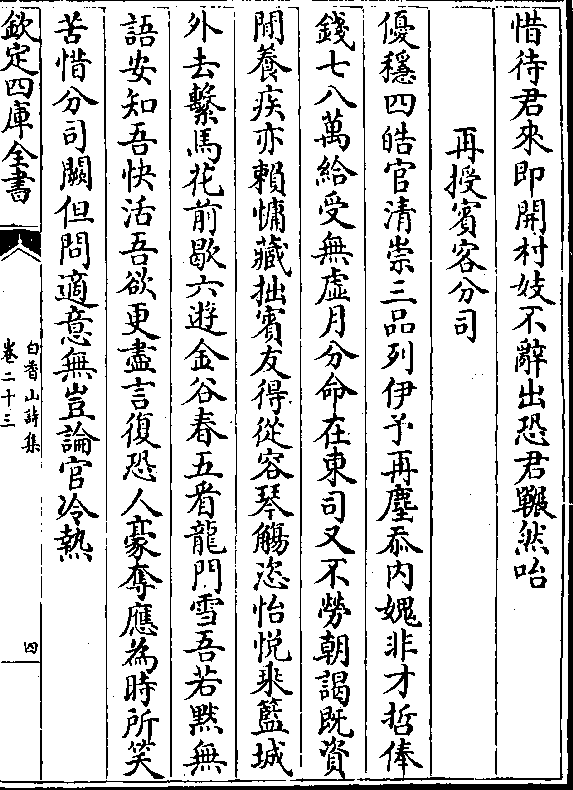 惜待君來即開村妓不辭出恐君囅然咍
再授賓客分司
優穩四皓官清崇三品列伊予再塵忝内媿非才哲俸
錢七八萬給受無虛月分命在東司又不勞朝謁既資
閒養疾亦賴慵藏拙賓友得從容琴觴恣怡悦乗籃城
外去繫馬花前歇六遊金谷春五看龍門雪吾若黙無
語安知吾快活吾欲更盡言復恐人豪奪應為時所笑
苦惜分司闕但問適意無豈論官冷熱
欽定四庫全書
白香山詩集
卷二十三
四